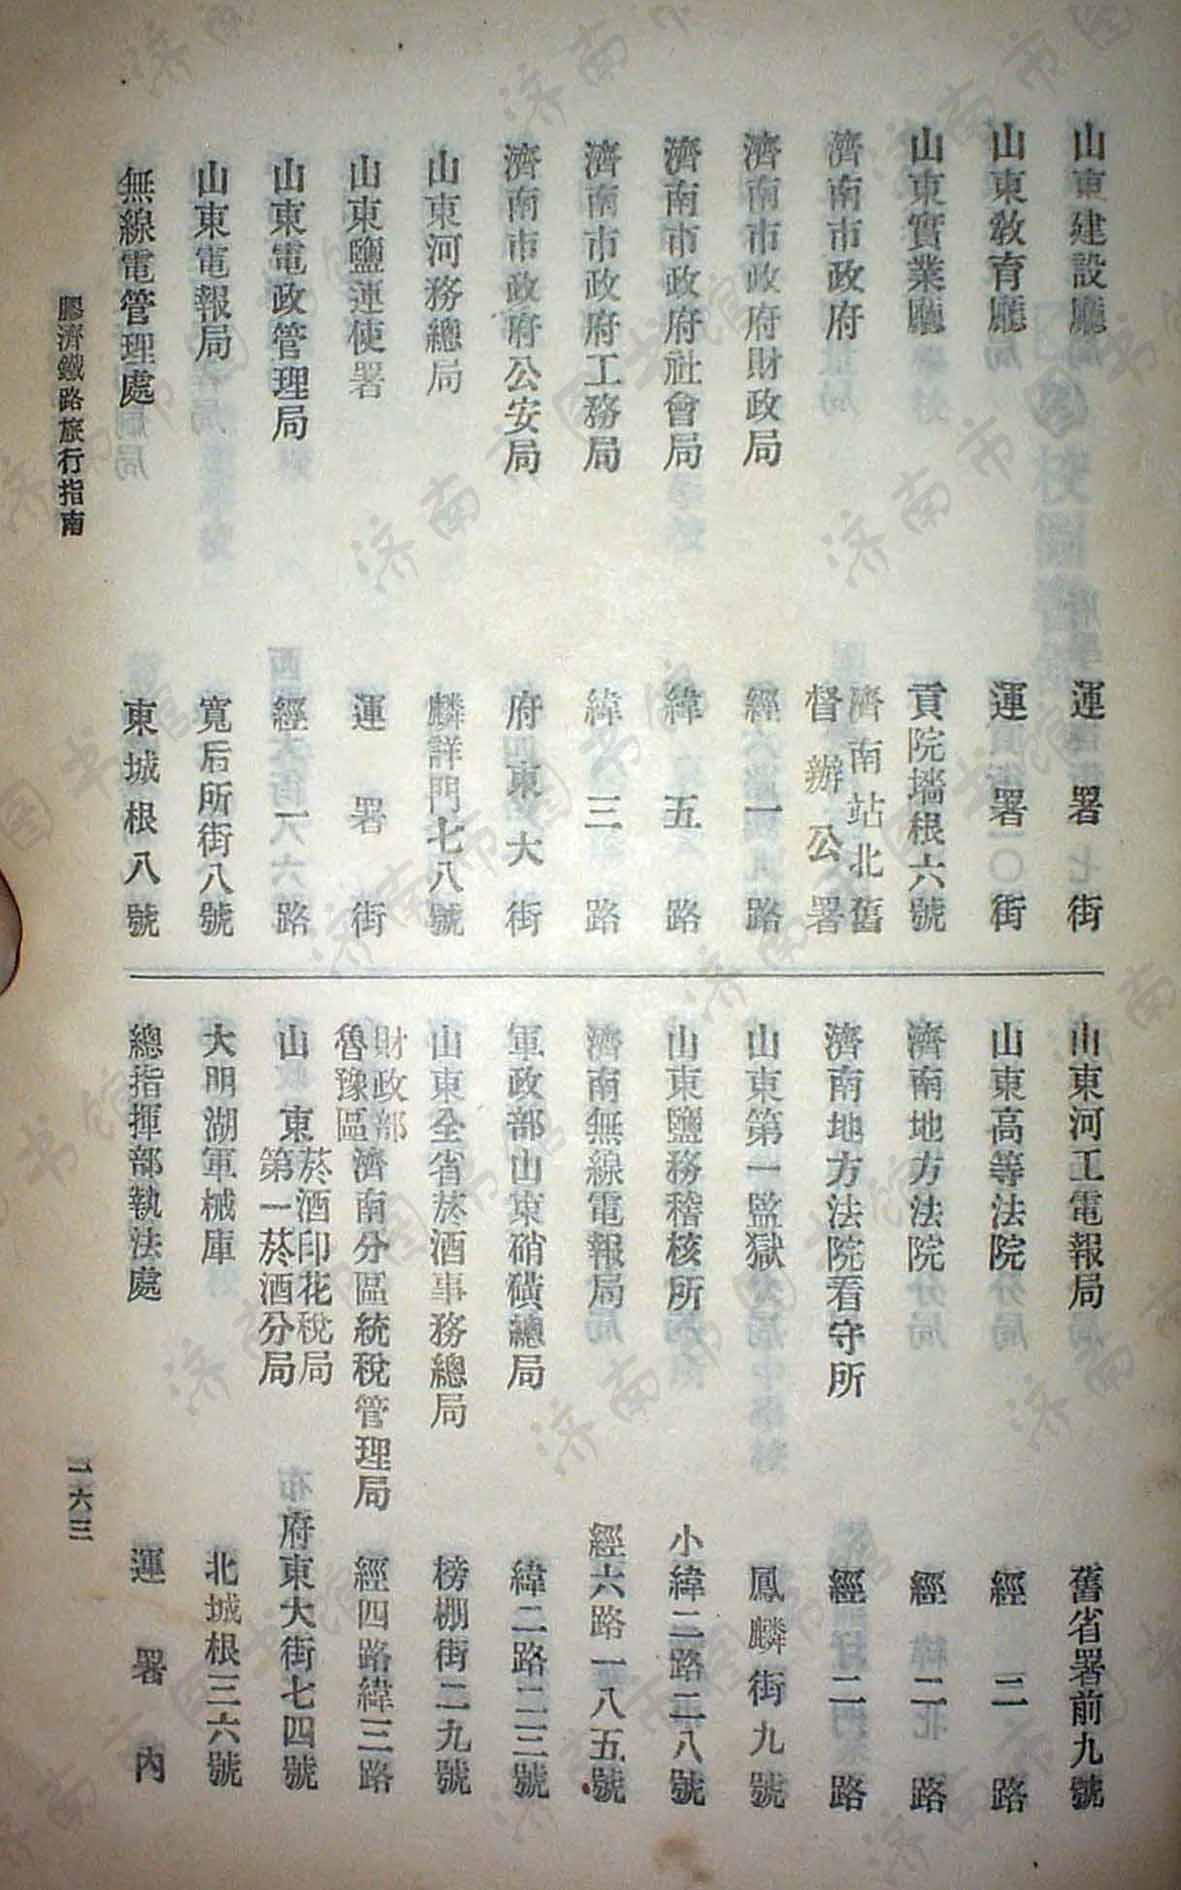 山東建設廳 運署街
山東教育廳 運署街
山東實業廳 貢院墻根六號
濟南市政府 濟南站北舊督辦公署
濟南市政府財政局 經一路
濟南市政府社會局 緯五路
濟南市政府工務局 緯三路
濟南市政府公安局 府東大街
山東河務總局 麟詳門七八號
山東鹽運使署 運署街
山東電政管理局 經一路
山東電報局 寬后所街八號
無線電管理處 東城根八號
山東河工電報局 舊省署前九號
山東高等法院 經二路
濟南地方法院 經二路
濟南地方法院看守所 經二路
山東第一監獄 鳳麟街九號
山東鹽務稽核所 小緯二路二八號
濟南無線電報局 經六路一八五號
軍政部山東硝磺總局 緯二路二三號
山東全省菸酒事務總局 榜棚街二九號
財政部魯豫區濟南分區統稅管理局 經四路緯三路
山東菸酒印花稅局第一菸酒分局 府東大街七四號
大明湖軍械庫 北城根三六號
總指揮部執法處 運署內
膠濟鐵路旅行指南
一六三
济南市图书馆